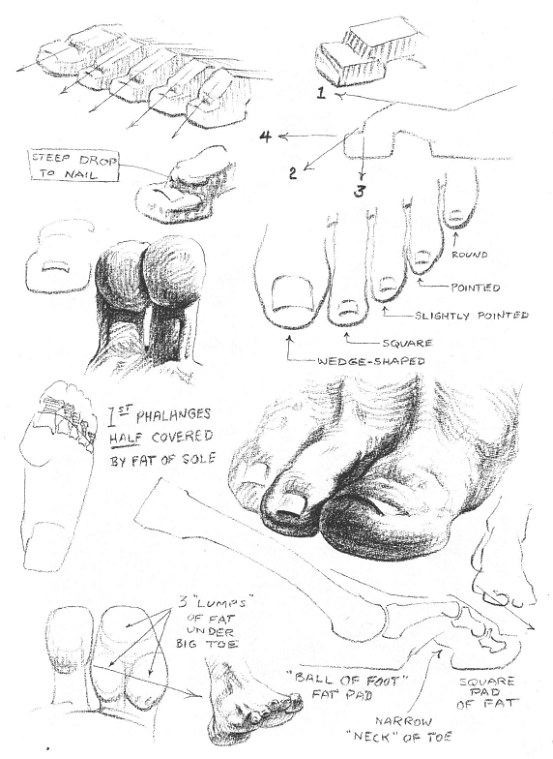 1
4
2
3
STEEP DROP
TO NAIL
ROUND
POINTED
SLIGHTLY POINTED
SQUARE
WEDGE-SHAPED
1ST PHALANGES
HALF COVERED
BY FAT OF SOLE
3 "LUMPS"
OF FAT
UNDER
BIG TOE
"BALL OF FOOT"
FAT PAD
SQUARE
PAD
OF FAT
NARROW
"NECK" OF TOE